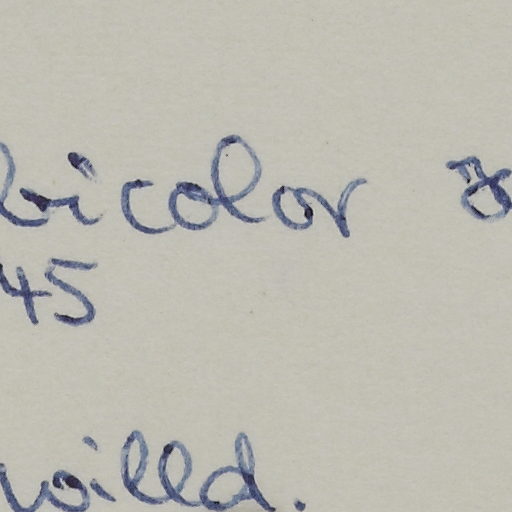 bicolor
45
willd.